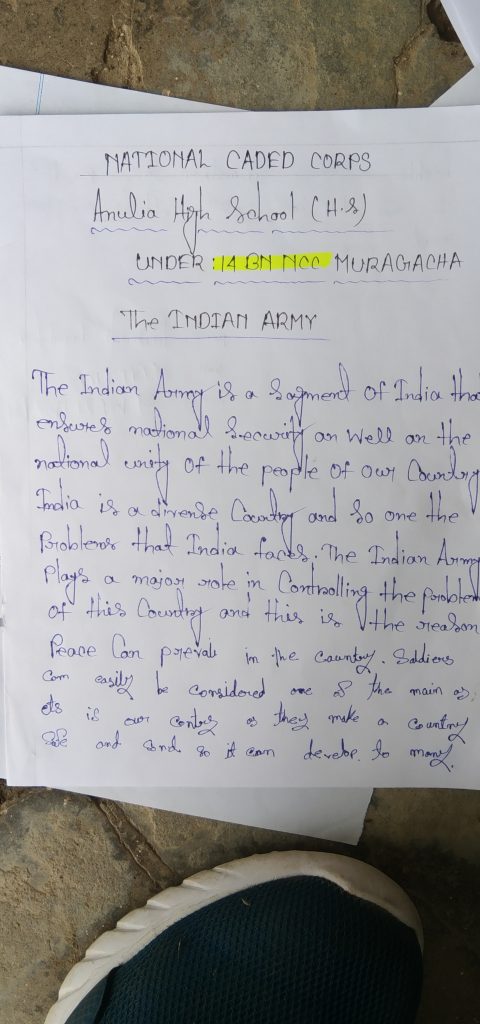 NATIONAL CADED CORPS
Anulia High School (H.S)
UNDER : 14 BN NCC MURAGACHA
The INDIAN ARMY
The Indian Army is a sagment of India tha
ensures national security as well as the
national unity of the people of our Country
India is a diverse Country and so one the
Problems that India faces. The Indian Army
Plays a major role in Controlling the problem
of this Country and this is the reason
Peace Can prevali in the country. Soldiers
can easily be considered one of the main as
ets is our contry as they make a country
Safe and so it can develop. So many.